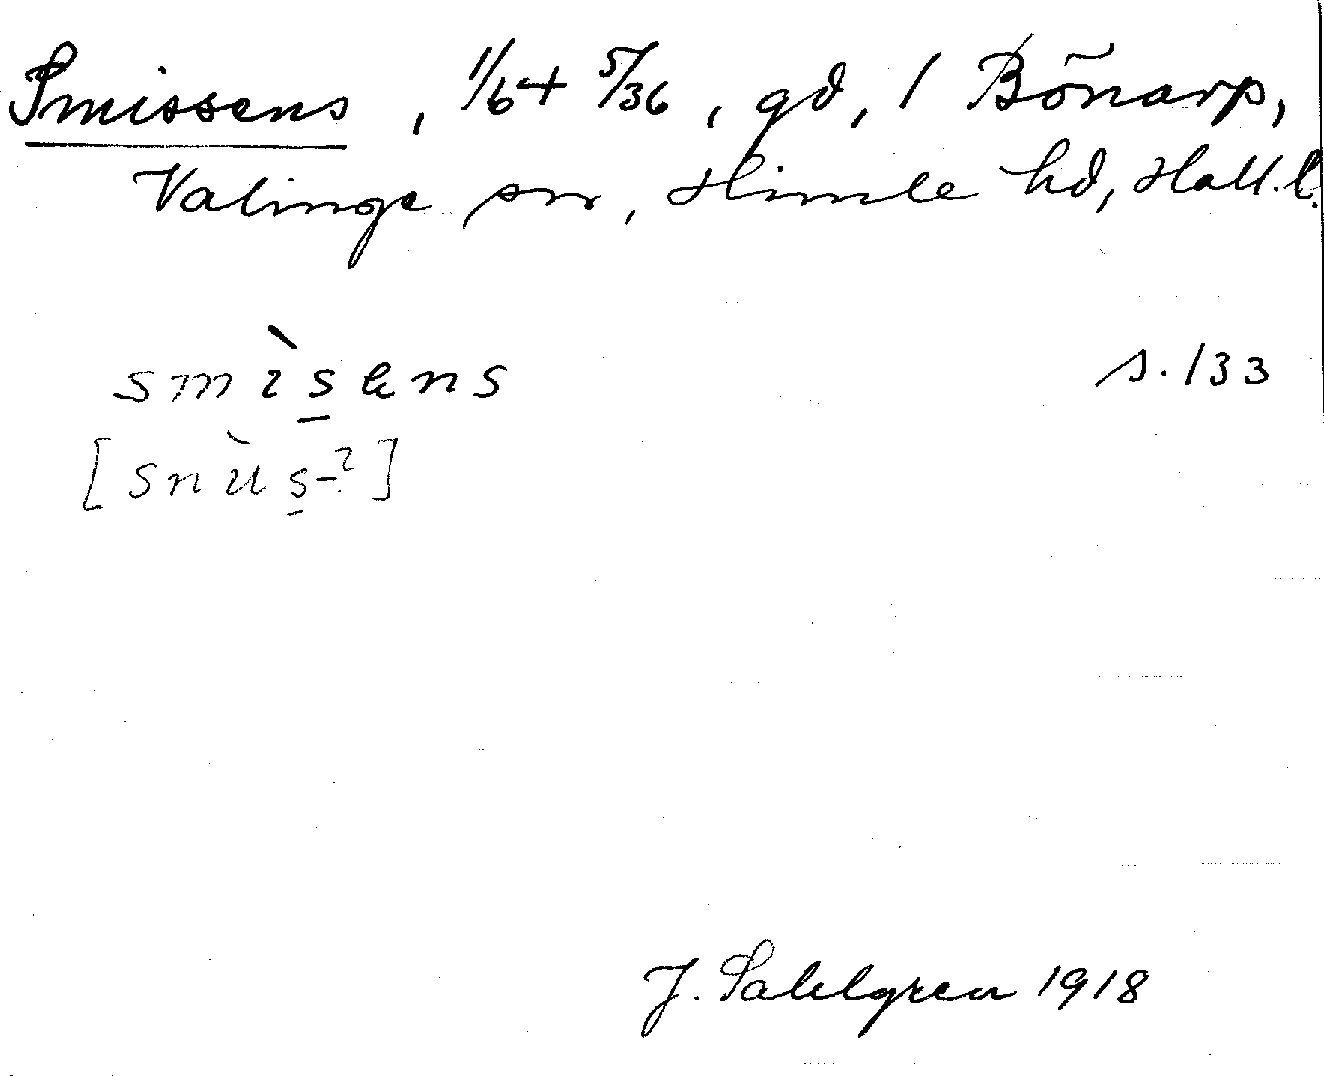 Smissens, 1/6 + 5/36, gd, 1 Bönarp,
Valinge sn, Himle hd, Hall. l.
smìs̲ens s. 133
[snùs̲-?]
J. Sahlgren 1918